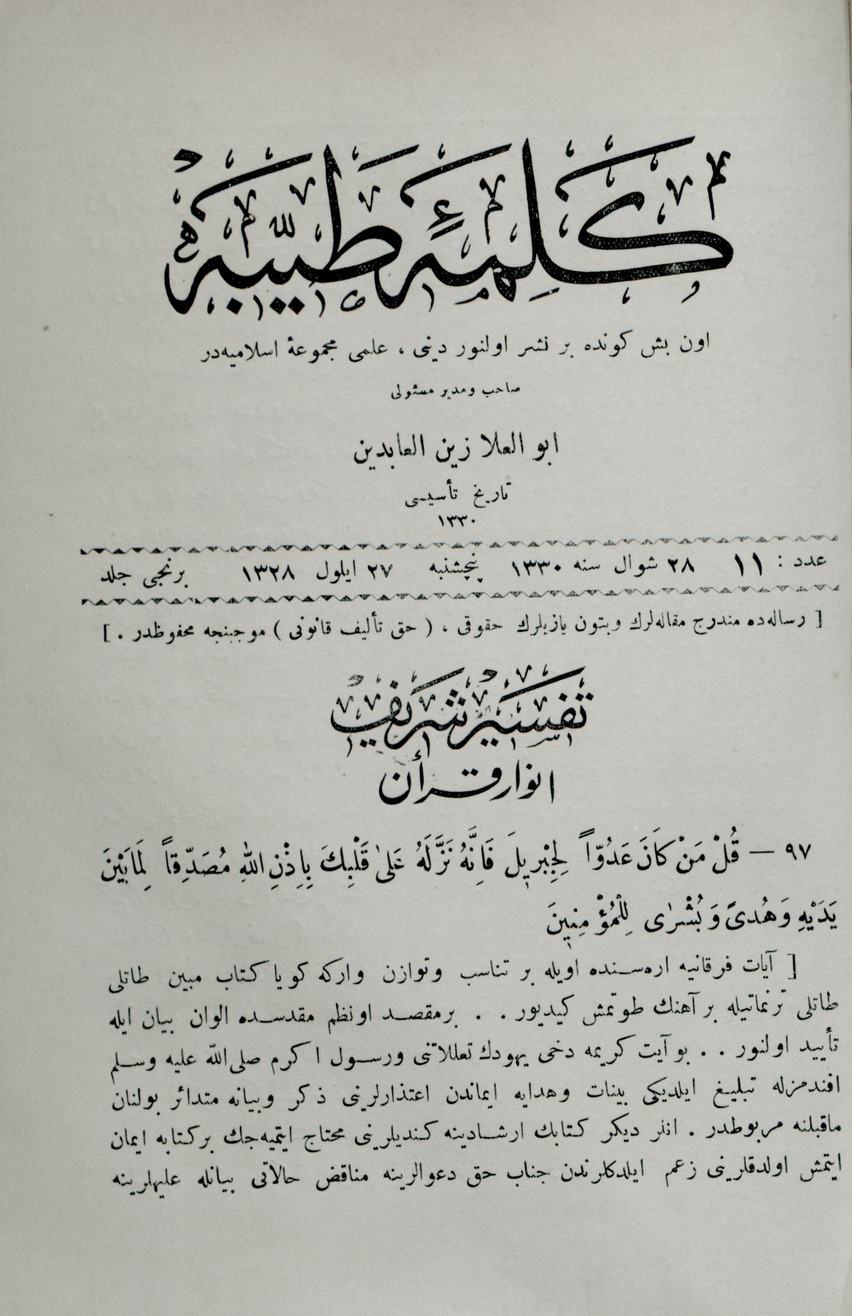 كلمۀ طيبه
اون بش كونده بر نشر اولنور دينى ، علمى مجموعۀ اسلاميه‌در
صاحب ومدير مسئولى
ابو العلا زين العابدين
تاريخ تأسيسى
١٣٣٠
عدد : ١١ ٢٨ شوال سنه ١٣٣٠ پنچشنبه ٢٧ ايلول ١٣٢٨ برنجى جلد
[ رساله‌ده مندرج مقاله‌لرك وبتون يازيلرك حقوقى ، ( حق تأليف قانونى ) موجبنجه محفوظدر . ]
تفسير شريف
انوار قرأن
٩٧ — قُلْ مَنْ كَانَ عَدُوّاً لِجِبْرِيلَ فَاِنَّهُ نَزَّلَهُ عَلىٰ قَلْبِكَ بِاِذْنِ اللهِ مُصَدِّقاً لِمَا بَيْنَ
يَدَيْهِ وَهُدىً وَبُشْرٰى لِلْمُؤْمِنِينَ
[ آيات فرقانيه اره‌سنده اويله بر تناسب وتوازن واركه كويا كتاب مبين طاتلى
طاتلى ترنماتيله بر آهنك طوتمش كيديور . . برمقصد اونظم مقدسده الوان بيان ايله
تأييد اولنور . . بو آيت كريمه دخى يهودك تعللاتنى ورسول اكرم صلى الله عليه وسلم
افندمزله تبليغ ايلديكى بينات وهدايه ايماندن اعتذارلرينى ذكر وبيانه متدائر بولنان
ماقبلنه مربوطدر . انلر ديكر كتابك ارشادينه كنديلرينى محتاج ايتميه‌جك بركتابه ايمان
ايتمش اولدقلرينى زعم ايلدكلرندن جناب حق دعوالرينه مناقض حالاتى بيانله عليهلرينه